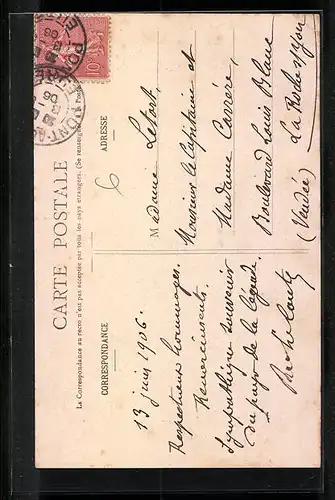 CARTE POSTALE
La Correspondance au recto n'est pas acceptée par tous les pays étrangers. (Se renseigner à la Poste)
CORRESPONDANCE
ADRESSE
13 juin 1906.
Respectueux hommages.
Remerciements.
Sympathique souvenir
du pays de la
Madame Letort,
Monsieur le Capitaine et
Madame Carrère,
Boulevard Louis Blanc
La Roche s/Yon
(Vendée)
6
10